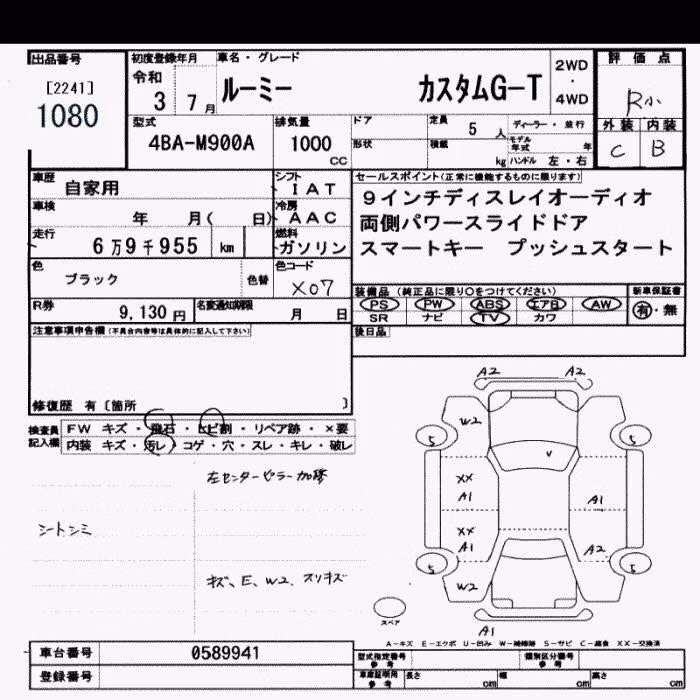 出品番号
[2241]
1080
初度登録年月
令和
3 7月
車名・グレード
ルーミー カスタムG-T
2WD
・
4WD
評価点
R小
外装 内装
C B
型式
4BA-M900A
排気量
1000
CC
ドア
形状
定員
5 人
積載
kg
ディーラー・並行
モデル年式 年
ハンドル 左・右
車歴
自家用
シフト
IAT
車検
年 月( 日)
冷房
AAC
走行
6万9千955 km
燃料
ガソリン
色
ブラック
色替
色コード
X07
R券
9,130円
名変通知期限
月 日
セールスポイント(正常に機能するものに限ります)
9インチディスレイオーディオ
両側パワースライドドア
スマートキー プッシュスタート
装備品(純正品に限り○をつけてください)
PS PW ABS エアB AW
SR ナビ TV カワ
新車保証書
有・無
後日品
注意事項申告欄(不具合内容等は具体的に記入して下さい)
修復歴 有〔箇所 〕
検査員
記入欄
FW キズ・飛石・ヒビ割・リペア跡・×要
内装 キズ・汚レ・コゲ・穴・スレ・キレ・破レ
左センターピラー加修
シートシミ
キズ、E、W2、スリキズ
A2 A2
W2
5 5
v
XX
A1
A1
XX
A1
A2
5 5
W2
スペア
A1
A-キズ E-エクボ U-凹み W-補修跡 S-サビ C-腐食 XX-交換済
車台番号
0589941
登録番号
型式指定番号
参考
類別区分番号
参考
車庫証明用
参考
長さ cm
幅 cm
高さ cm